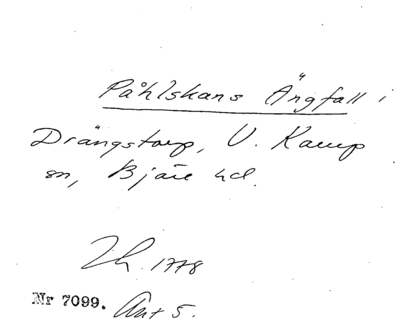 Påhlskans Ängfall i
Drängstorp, V. Karup
sn, Bjäre hd.
Th. 1778
Nr 7099. Ant 5.